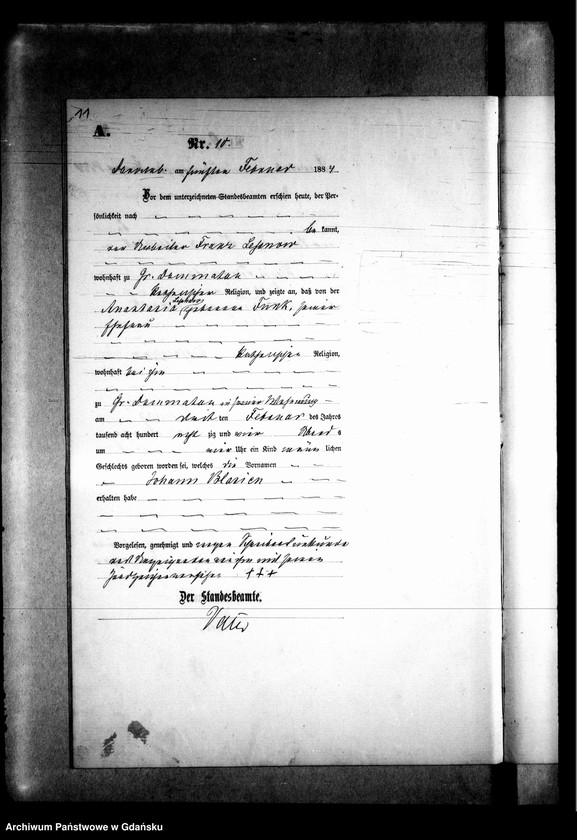 11
A.
Nr. 10.
am fünften Februar 1884.
Vor dem unterzeichneten Standesbeamten erschien heute, der Per-
sönlichkeit nach
be kannt,
der Arbeiter Franz
wohnhaft zu Gr. Dommatau
katholischer Religion, und zeigte an, daß von der
Anastasia geborene Funk, seiner
Ehefrau
katholischer Religion,
wohnhaft bei ihm
zu Gr. Dommatau in seiner Wohnung
am dritten Februar des Jahres
tausend acht hundert acht zig und vier Abends
um vier Uhr ein Kind männ lichen
Geschlechts geboren worden sei, welches die Vornamen
Johann
erhalten habe
Vorgelesen, genehmigt und wegen
von mit seinem
Handzeichen versehen +++
Der Standesbeamte.
Archiwum Państwowe w Gdańsku